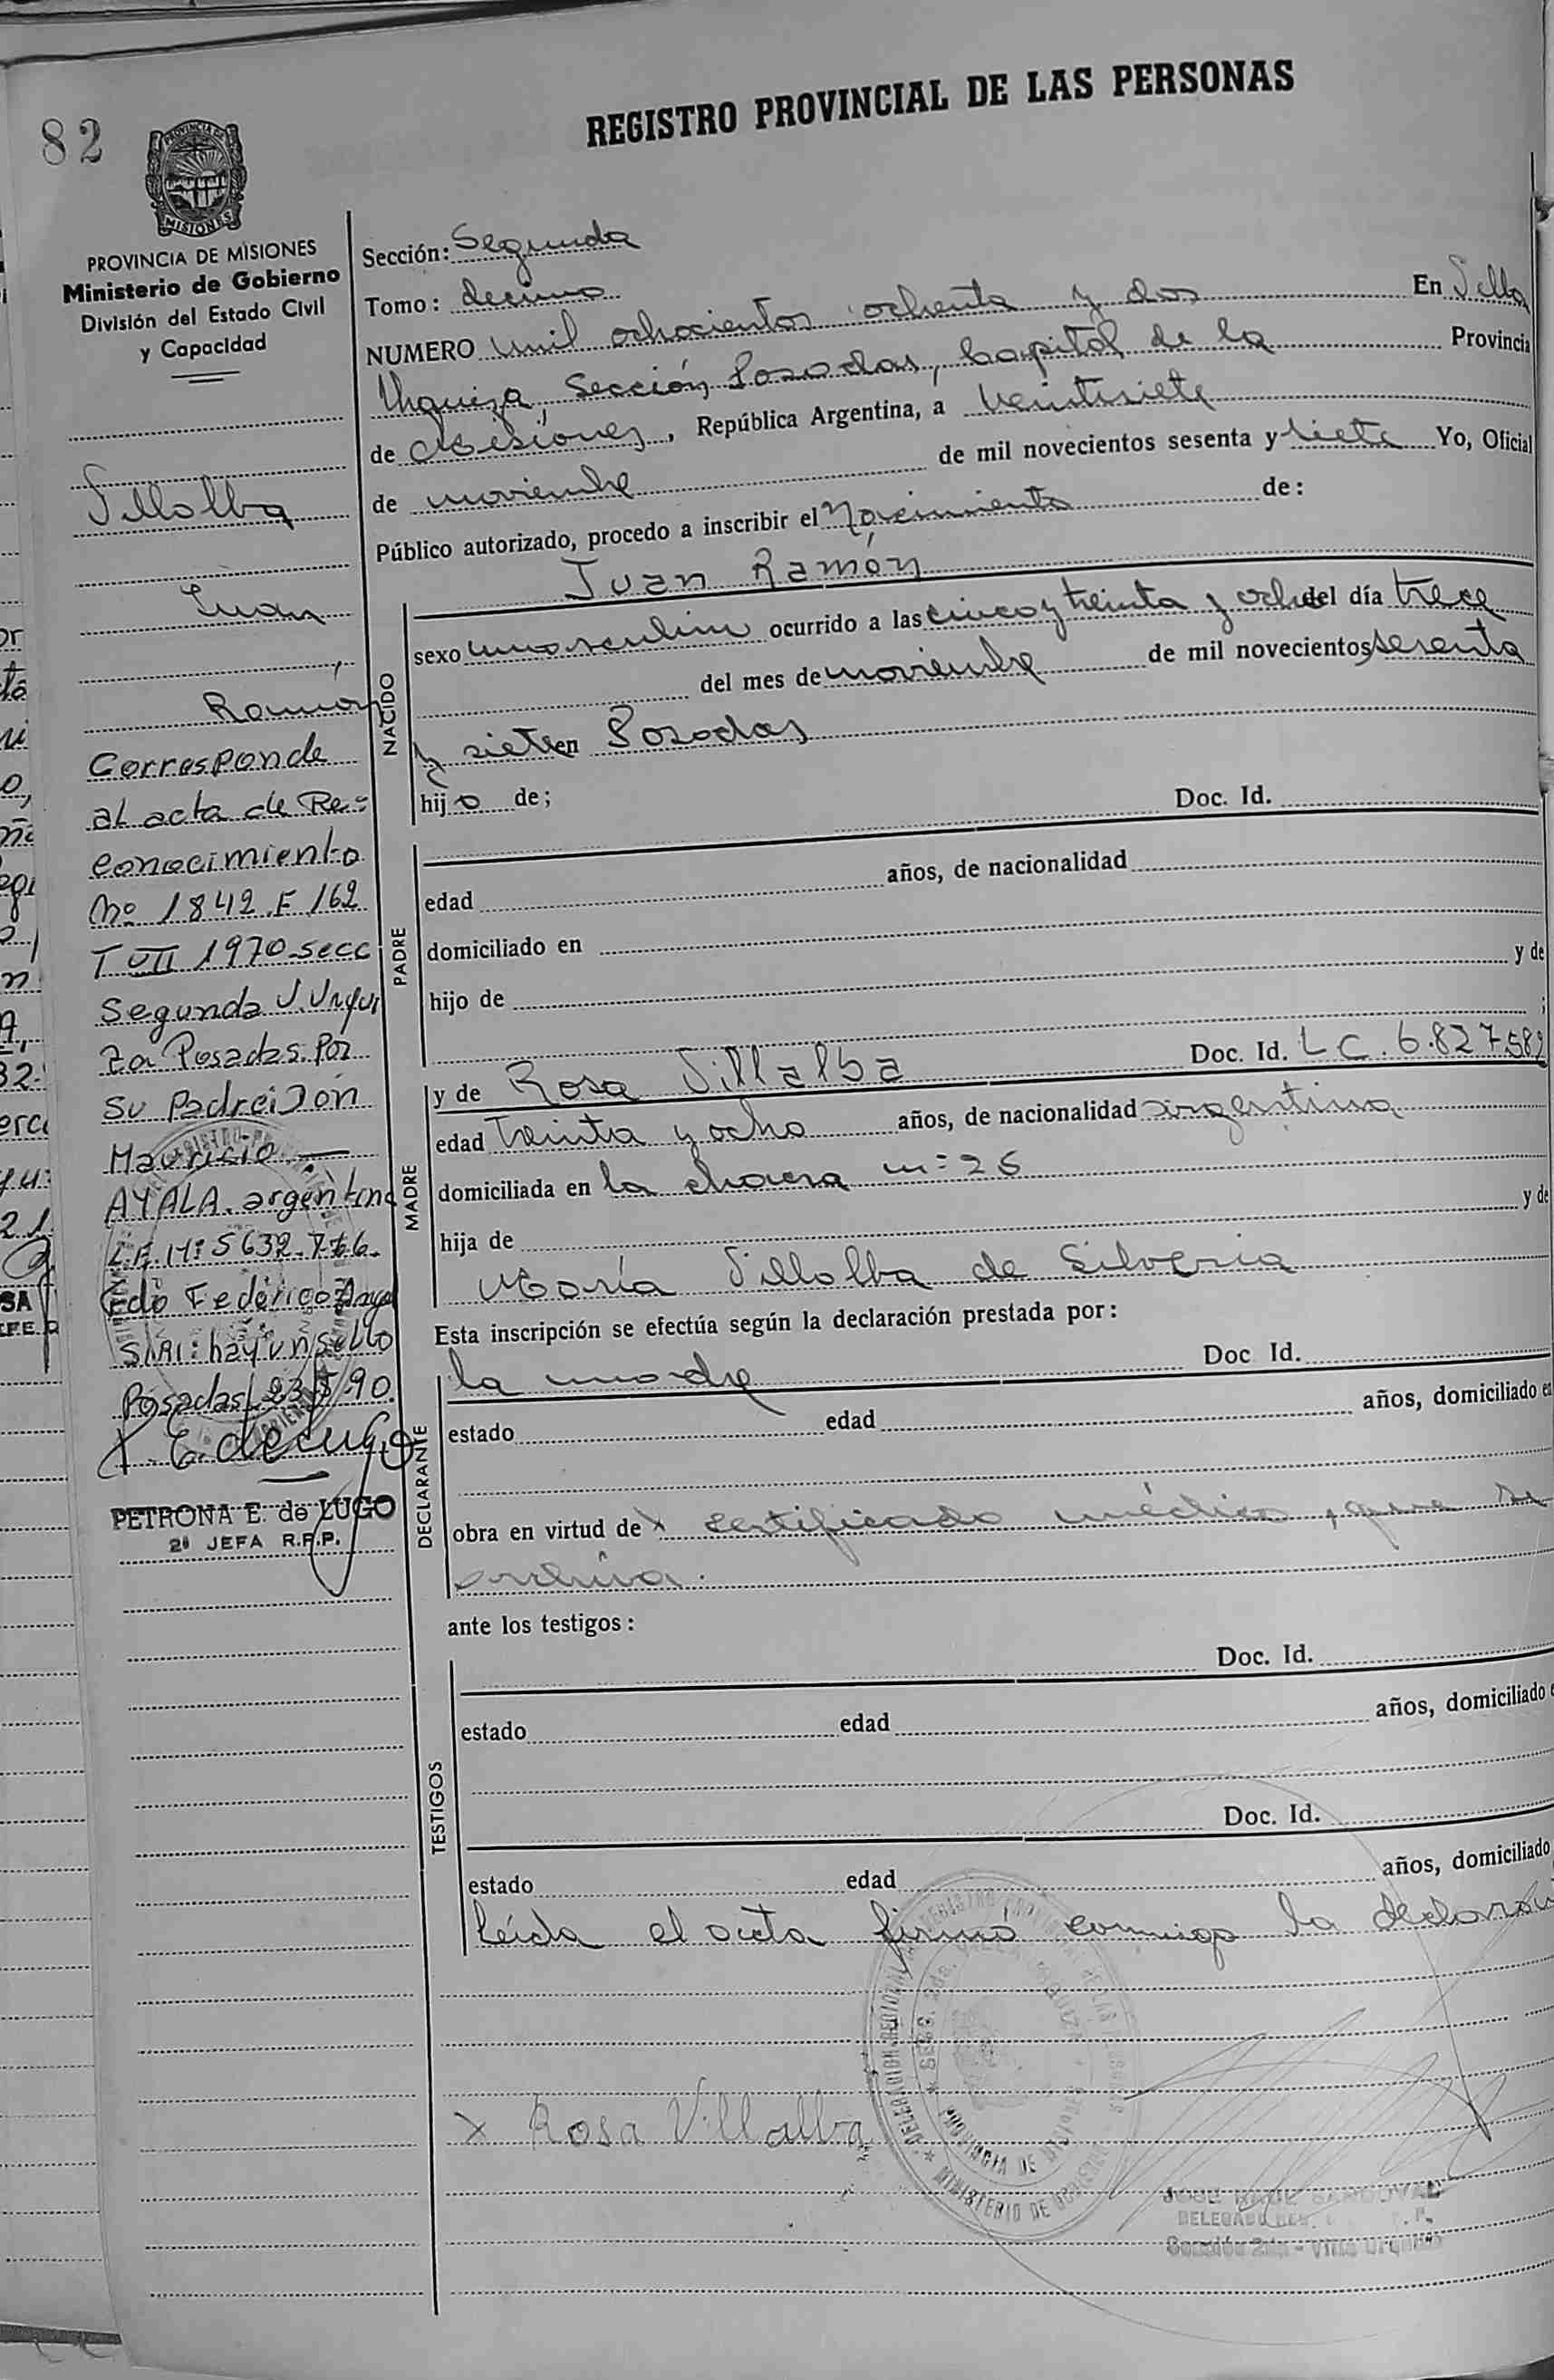 82
REGISTRO PROVINCIAL DE LAS PERSONAS
PROVINCIA DE MISIONES
PROVINCIA DE MISIONES
Ministerio de Gobierno
División del Estado Civil
y Capacidad
Villalba
Juan
Ramón
Corresponde
al acta de Re-
conocimiento
Nº 1842 F 162
T VII 1970 secc
Segunda V. Urqui
za Posadas. Por
su Padre: Don
Mauricio
AYALA. argentino
L.E. Nº 5632.776.
Fdo Federico
hay un sello
Posadas 23.5.90.
P. E. de Lugo
PETRONA E. de LUGO
2ª JEFA R.P.P.
Sección: Segunda
Tomo: decimo
NUMERO mil ochocientos ochenta y dos En Villa
Urquiza, Sección Posadas, Capital de la Provincia
de Misiones, República Argentina, a veintisiete
de noviembre de mil novecientos sesenta y siete Yo, Oficial
Público autorizado, procedo a inscribir el Nacimiento de:
Juan Ramón
NACIDO
sexo masculino ocurrido a las cinco y treinta y ocho del día trece
del mes de noviembre de mil novecientos sesenta
y siete en Posadas
hijo de;
Doc. Id.
PADRE
edad años, de nacionalidad
domiciliado en
hijo de y de
;
y de Rosa Villalba Doc. Id. L C. 6.827.582
MADRE
edad treinta y ocho años, de nacionalidad argentina
domiciliada en la chacra nº 26
hija de y de
María Villalba de Silveria
Esta inscripción se efectúa según la declaración prestada por:
la madre Doc Id.
DECLARANTE
estado edad años, domiciliado en
obra en virtud de x certificado médico, que se
archiva.
ante los testigos:
Doc. Id.
TESTIGOS
estado edad años, domiciliado e
Doc. Id.
estado edad años, domiciliado
Leída el acta firmó conmigo la declaran
x Rosa Villalba
DELEGACION REGIONAL
SECC. 2da. VILLA URQUIZA
PROVINCIA DE MISIONES
MINISTERIO DE GOBIERNO
JOSE RAUL SANDOVAL
DELEGADO
Sección 2da - Villa Urquiza